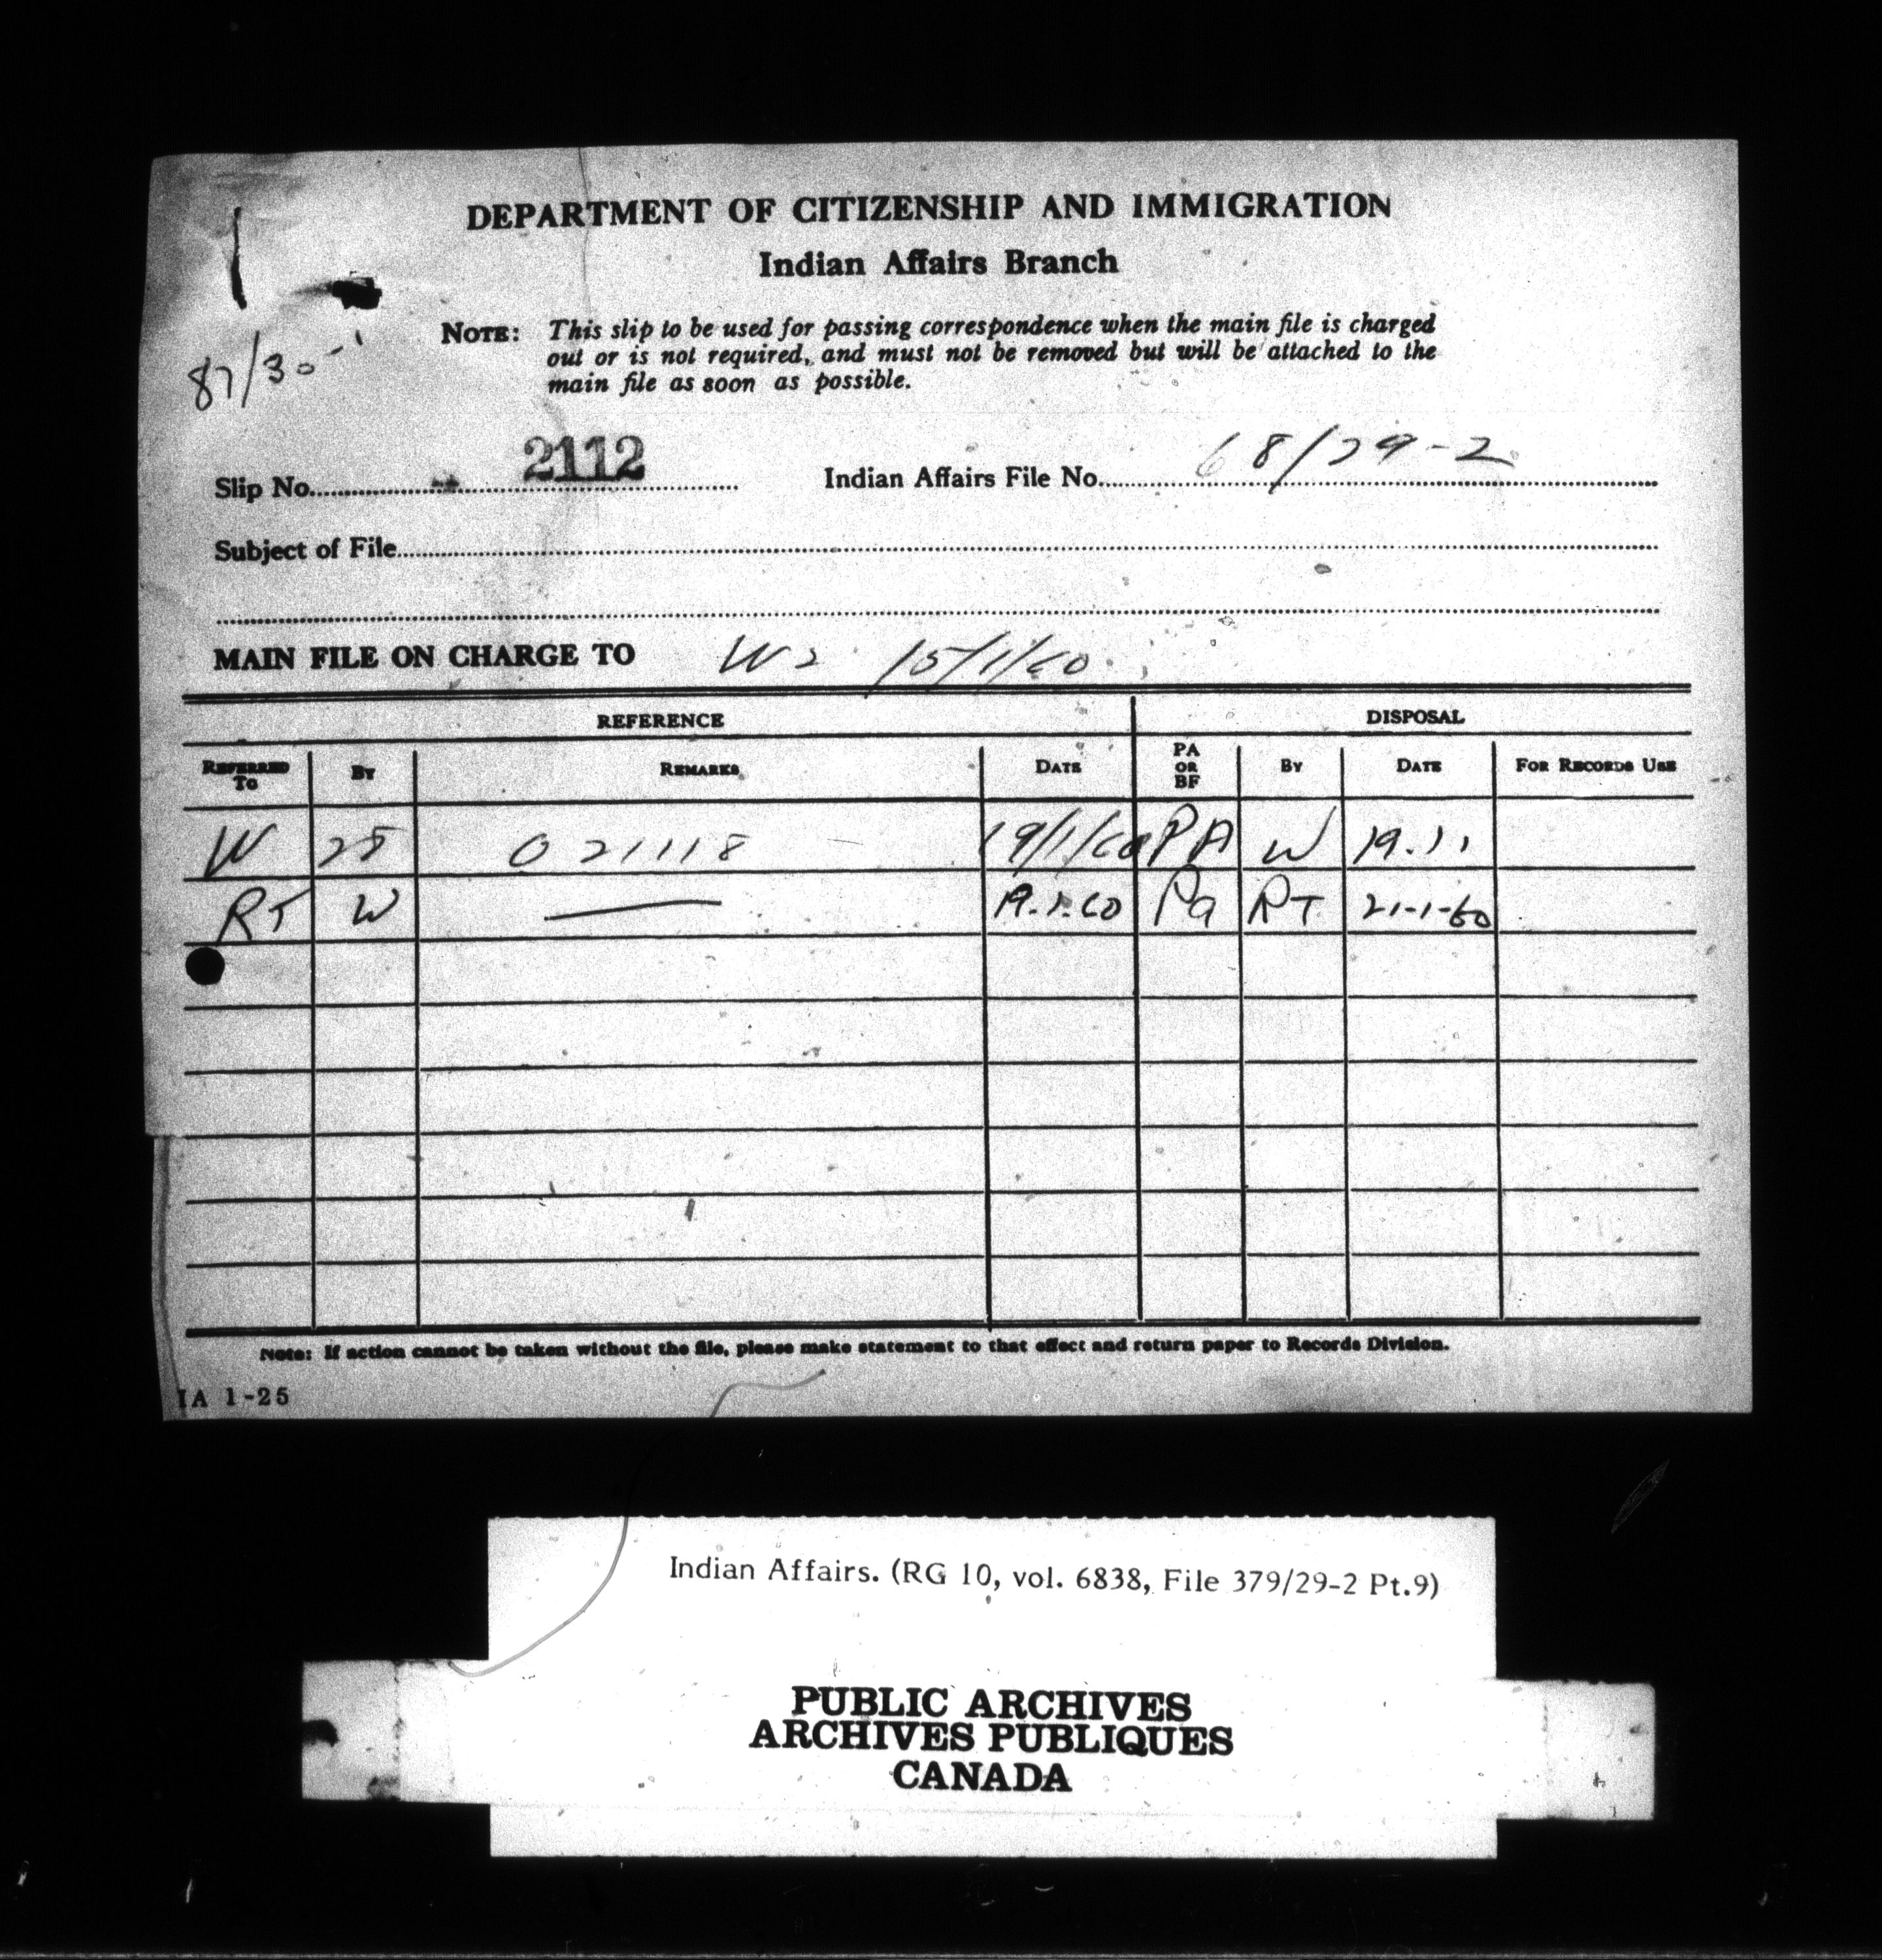 DEPARTMENT OF CITIZENSHIP AND IMMIGRATION
Indian Affairs Branch
NOTE: This slip to be used for passing correspondence when the main file is charged
out or is not required, and must not be removed but will be attached to the
main file as soon as possible.
87/30-1
Slip No. 2112 Indian Affairs File No. 68/29-2
Subject of File
MAIN FILE ON CHARGE TO W2 15/1/60
REFERENCE DISPOSAL
REFERRED TO BY REMARKS DATE PA OR BF BY DATE FOR RECORDS USE
W 25 021118 19/1/60 PA W 19.1
RT W — 19.1.60 Pa RT 21-1-60
Note: If action cannot be taken without the file, please make statement to that effect and return paper to Records Division.
IA 1-25
Indian Affairs. (RG 10, vol. 6838, File 379/29-2 Pt.9)
PUBLIC ARCHIVES
ARCHIVES PUBLIQUES
CANADA